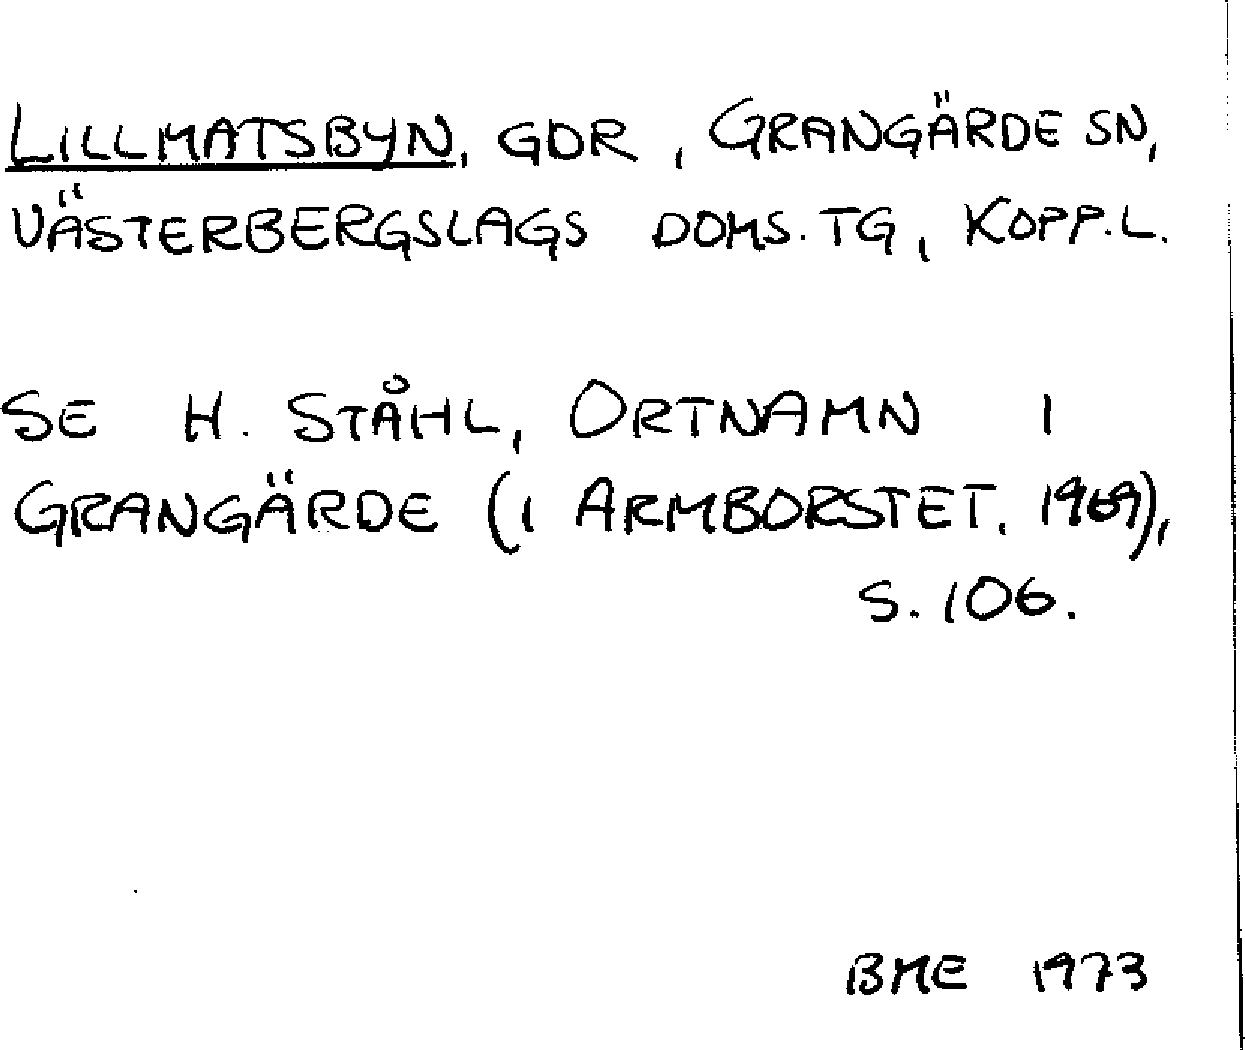 LILLMATSBYN, GDR, GRANGÄRDE SN,
VÄSTERBERGSLAGS DOMS.TG, KOPP.L.
SE H. STÅHL, ORTNAMN I
GRANGÄRDE (I ARMBORSTET, 1969),
S. 106.
BME 1973